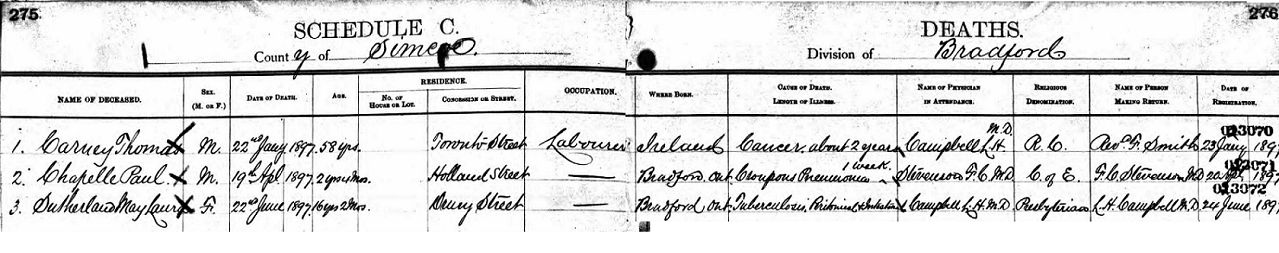 275. 276
SCHEDULE C. DEATHS.
County of Simcoe. Division of Bradford
NAME OF DECEASED. SEX. (M. OR F.) DATE OF DEATH. AGE. RESIDENCE. No. OF HOUSE OR LOT. CONCESSION OR STREET. OCCUPATION. WHERE BORN. CAUSE OF DEATH. LENGTH OF ILLNESS. NAME OF PHYSICIAN IN ATTENDANCE. RELIGIOUS DENOMINATION. NAME OF PERSON MAKING RETURN. DATE OF REGISTRATION.
013070
1. Carney Thomas M. 22nd Jany 1897. 58 yrs. Toronto Street Labourer Ireland Cancer, about 2 years Campbell L.H. M.D. R.C. Revd. F. Smith 23 Jany 1897
013071
2. Chapelle Paul. M. 19th Apl. 1897. 2 yrs Mos. Holland Street Bradford. Ont. Croupous Pneumonia 1 week. Stevenson F.C. M.D. C. of E. F.C. Stevenson M.D. 20 Apl. 1897
013072
3. Sutherland May F. 22nd June 1897. 16 yrs 2 Mos. Drury Street Bradford Ont. Tuberculosis, Campbell L.H. M.D. Presbyterian L.H. Campbell M.D. 24 June 1897